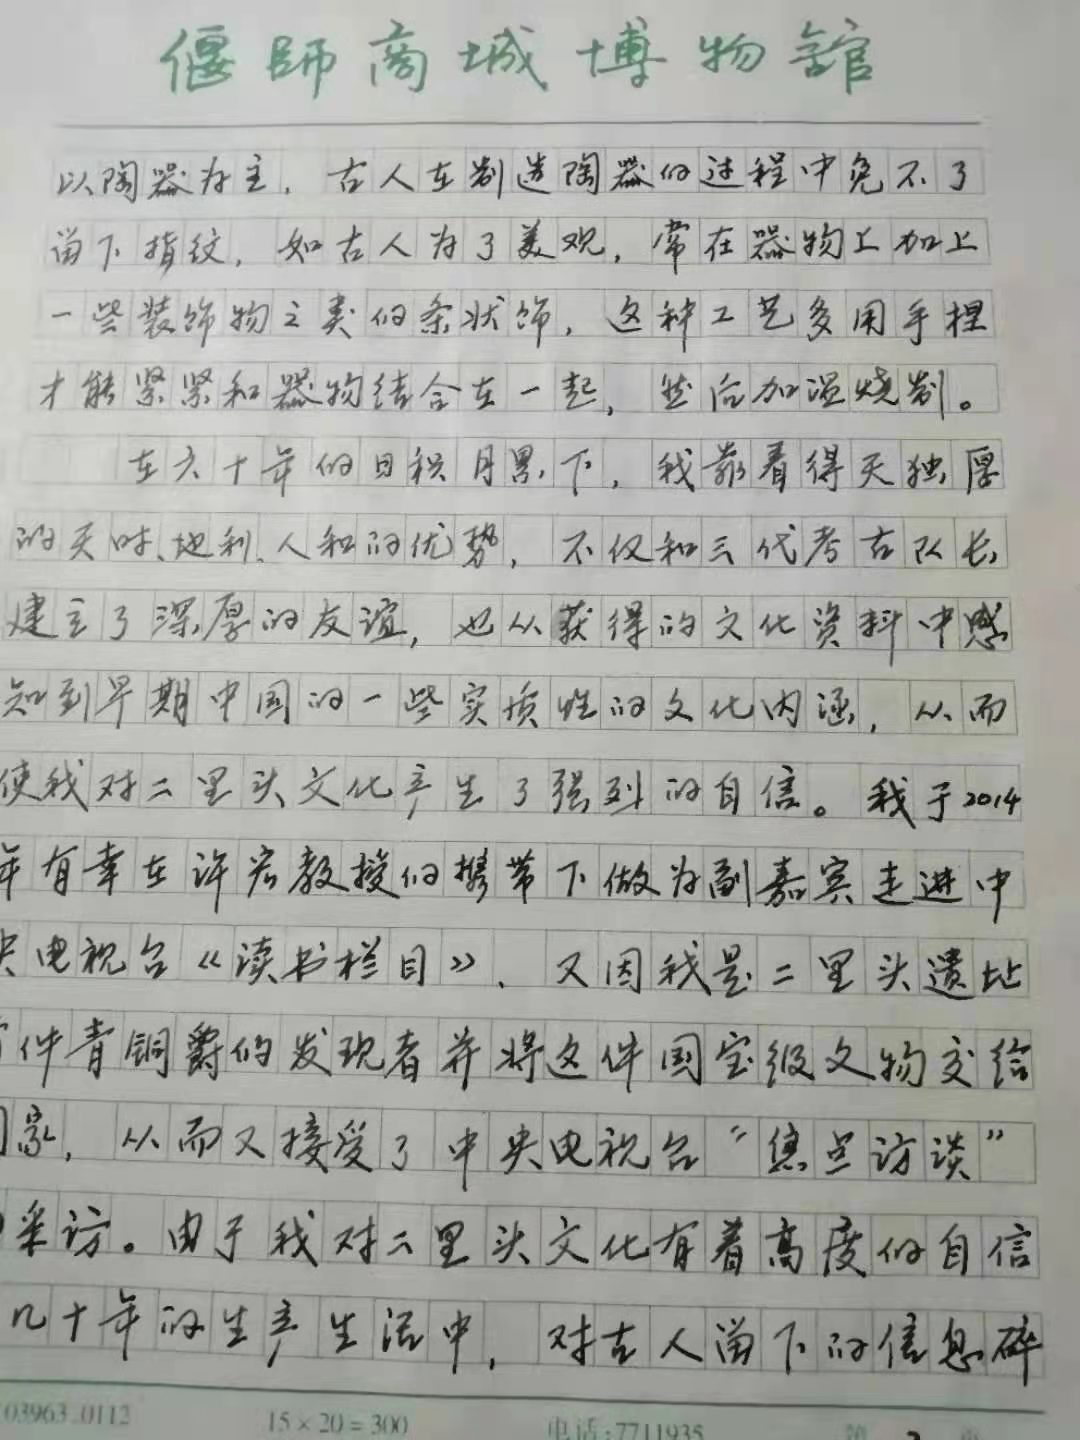 偃師商城博物館
以陶器为主，古人在制造陶器的过程中免不了
留下指纹，如古人为了美观，常在器物上加上
一些装饰物之类的条状饰，这种工艺多用手捏
才能紧紧和器物结合在一起，然后加温烧制。
在六十年的日积月累下，我靠着得天独厚
的天时、地利、人和的优势，不仅和三代考古队长
建立了深厚的友谊，也从获得的文化资料中感
知到早期中国的一些实质性的文化内涵，从而
使我对二里头文化产生了强烈的自信。我于2014
年有幸在许宏教授的携带下做为副嘉宾走进中
央电视台《读书栏目》，又因我是二里头遗址
件青铜爵的发现者并将这件国宝级文物交给
国家，从而又接受了中央电视台“焦点访谈”
采访。由于我对二里头文化有着高度的自信
几十年的生产生活中，对古人留下的信息碎
03963.0112 15×20=300 电话:7711935